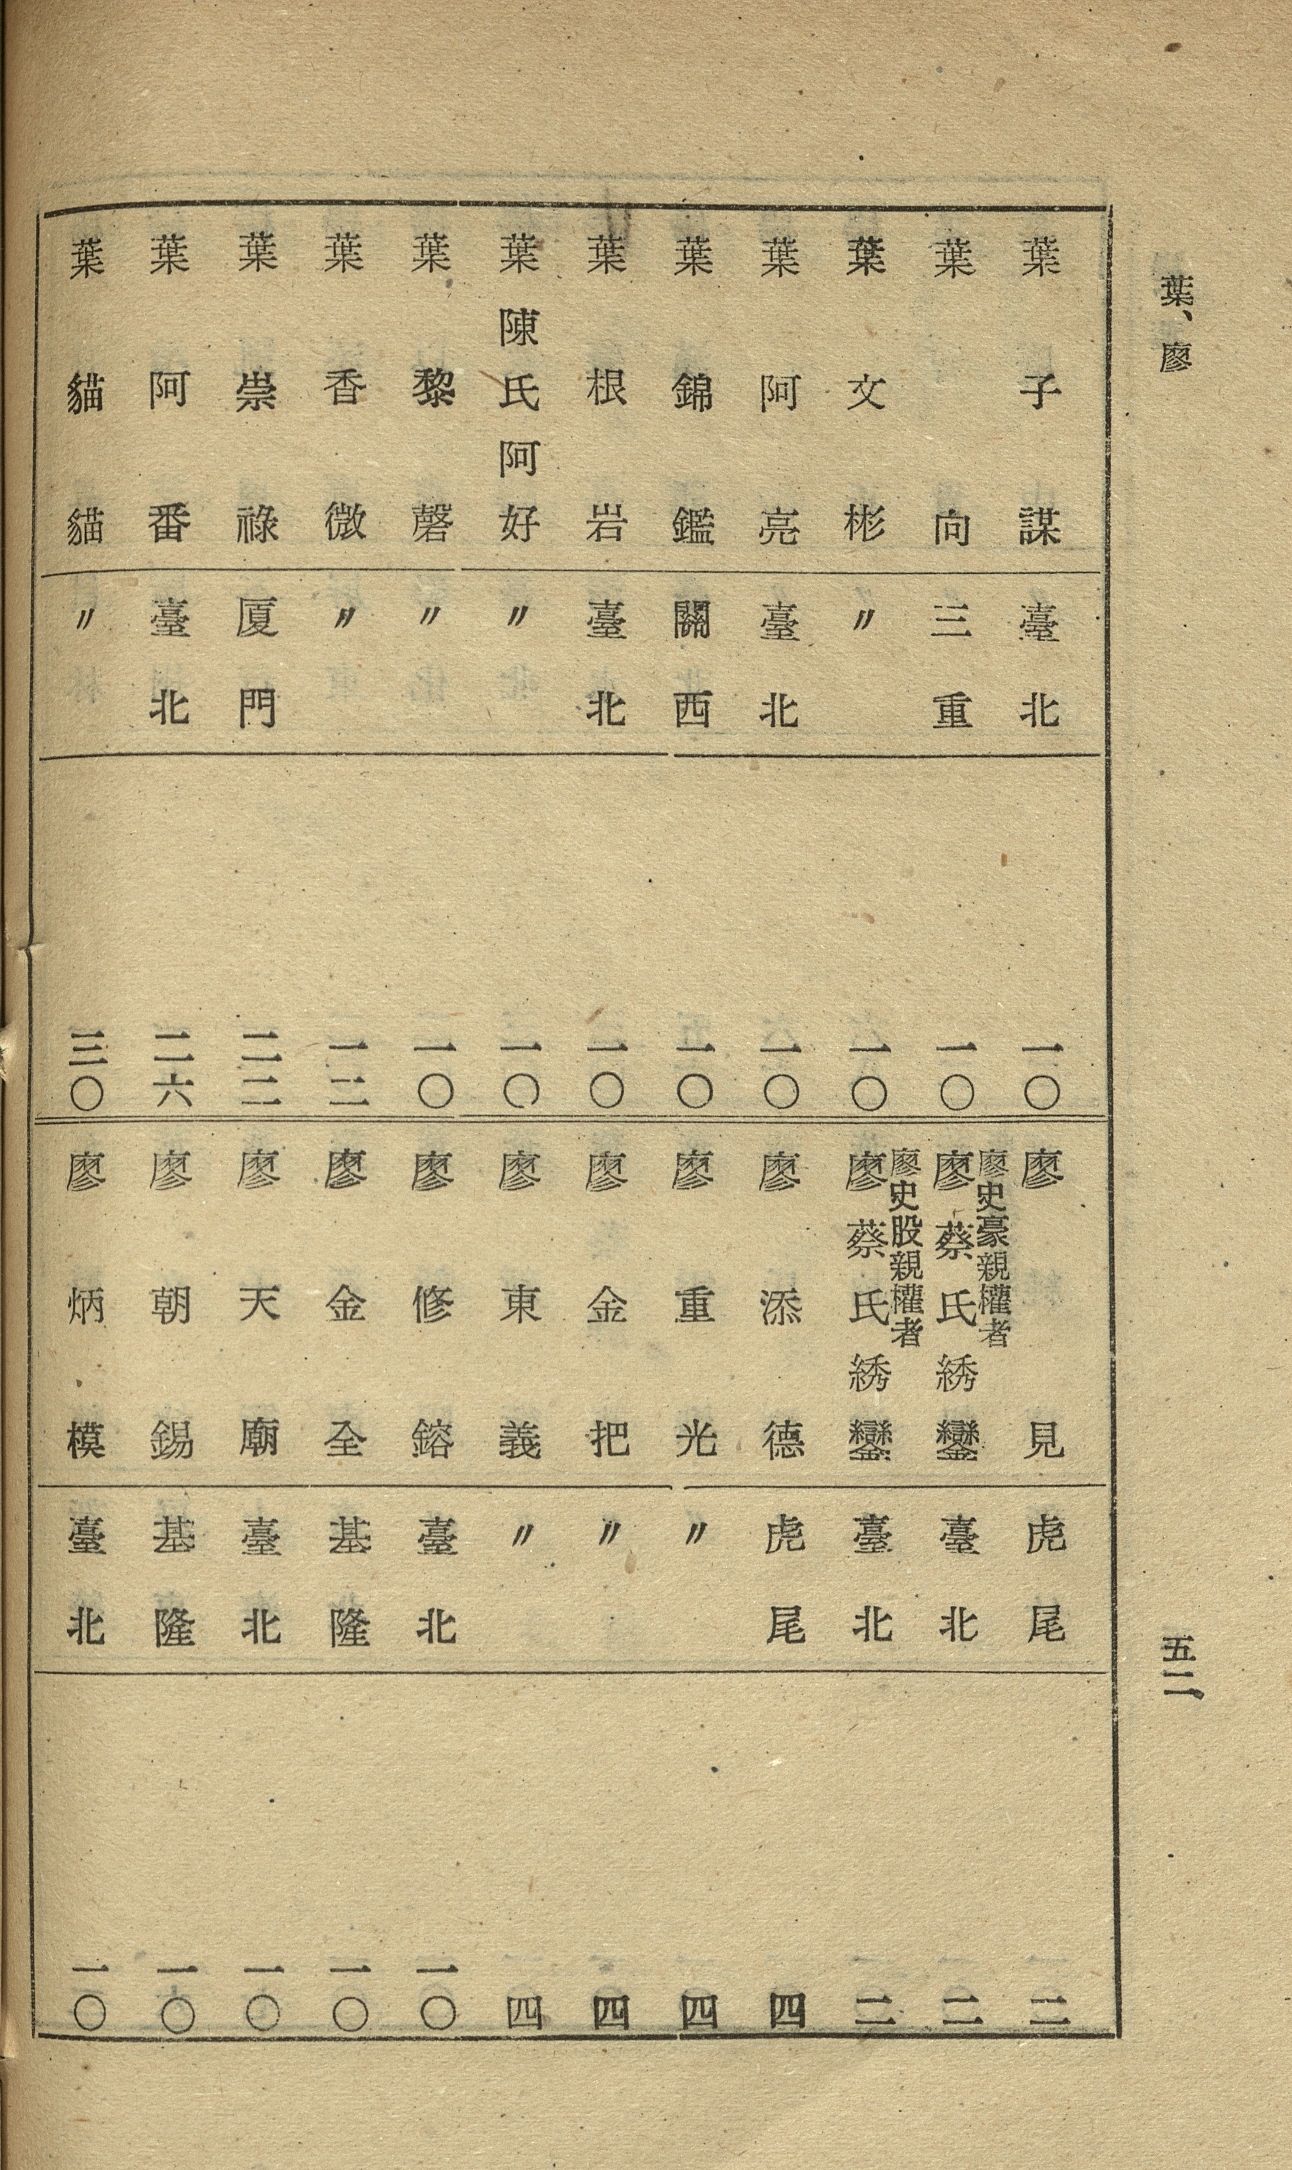 葉、廖
五二
葉子謀 臺北 一〇
葉向 三重 一〇
葉文彬 〃 一〇
葉阿亮 臺北 一〇
葉錦鑑 關西 一〇
葉根岩 臺北 一〇
葉陳氏阿好 〃 一〇
葉黎磬 〃 一〇
葉香微 〃 一二
葉崇祿 厦門 二二
葉阿番 臺北 二六
葉貓貓 〃 三〇
廖見 虎尾 二
廖史豪親權者
廖蔡氏綉鸞 臺北 二
廖史股親權者
廖蔡氏綉鸞 臺北 二
廖添德 虎尾 四
廖重光 〃 四
廖金把 〃 四
廖東義 〃 四
廖修鎔 臺北 一〇
廖金全 基隆 一〇
廖天廟 臺北 一〇
廖朝錫 基隆 一〇
廖炳模 臺北 一〇